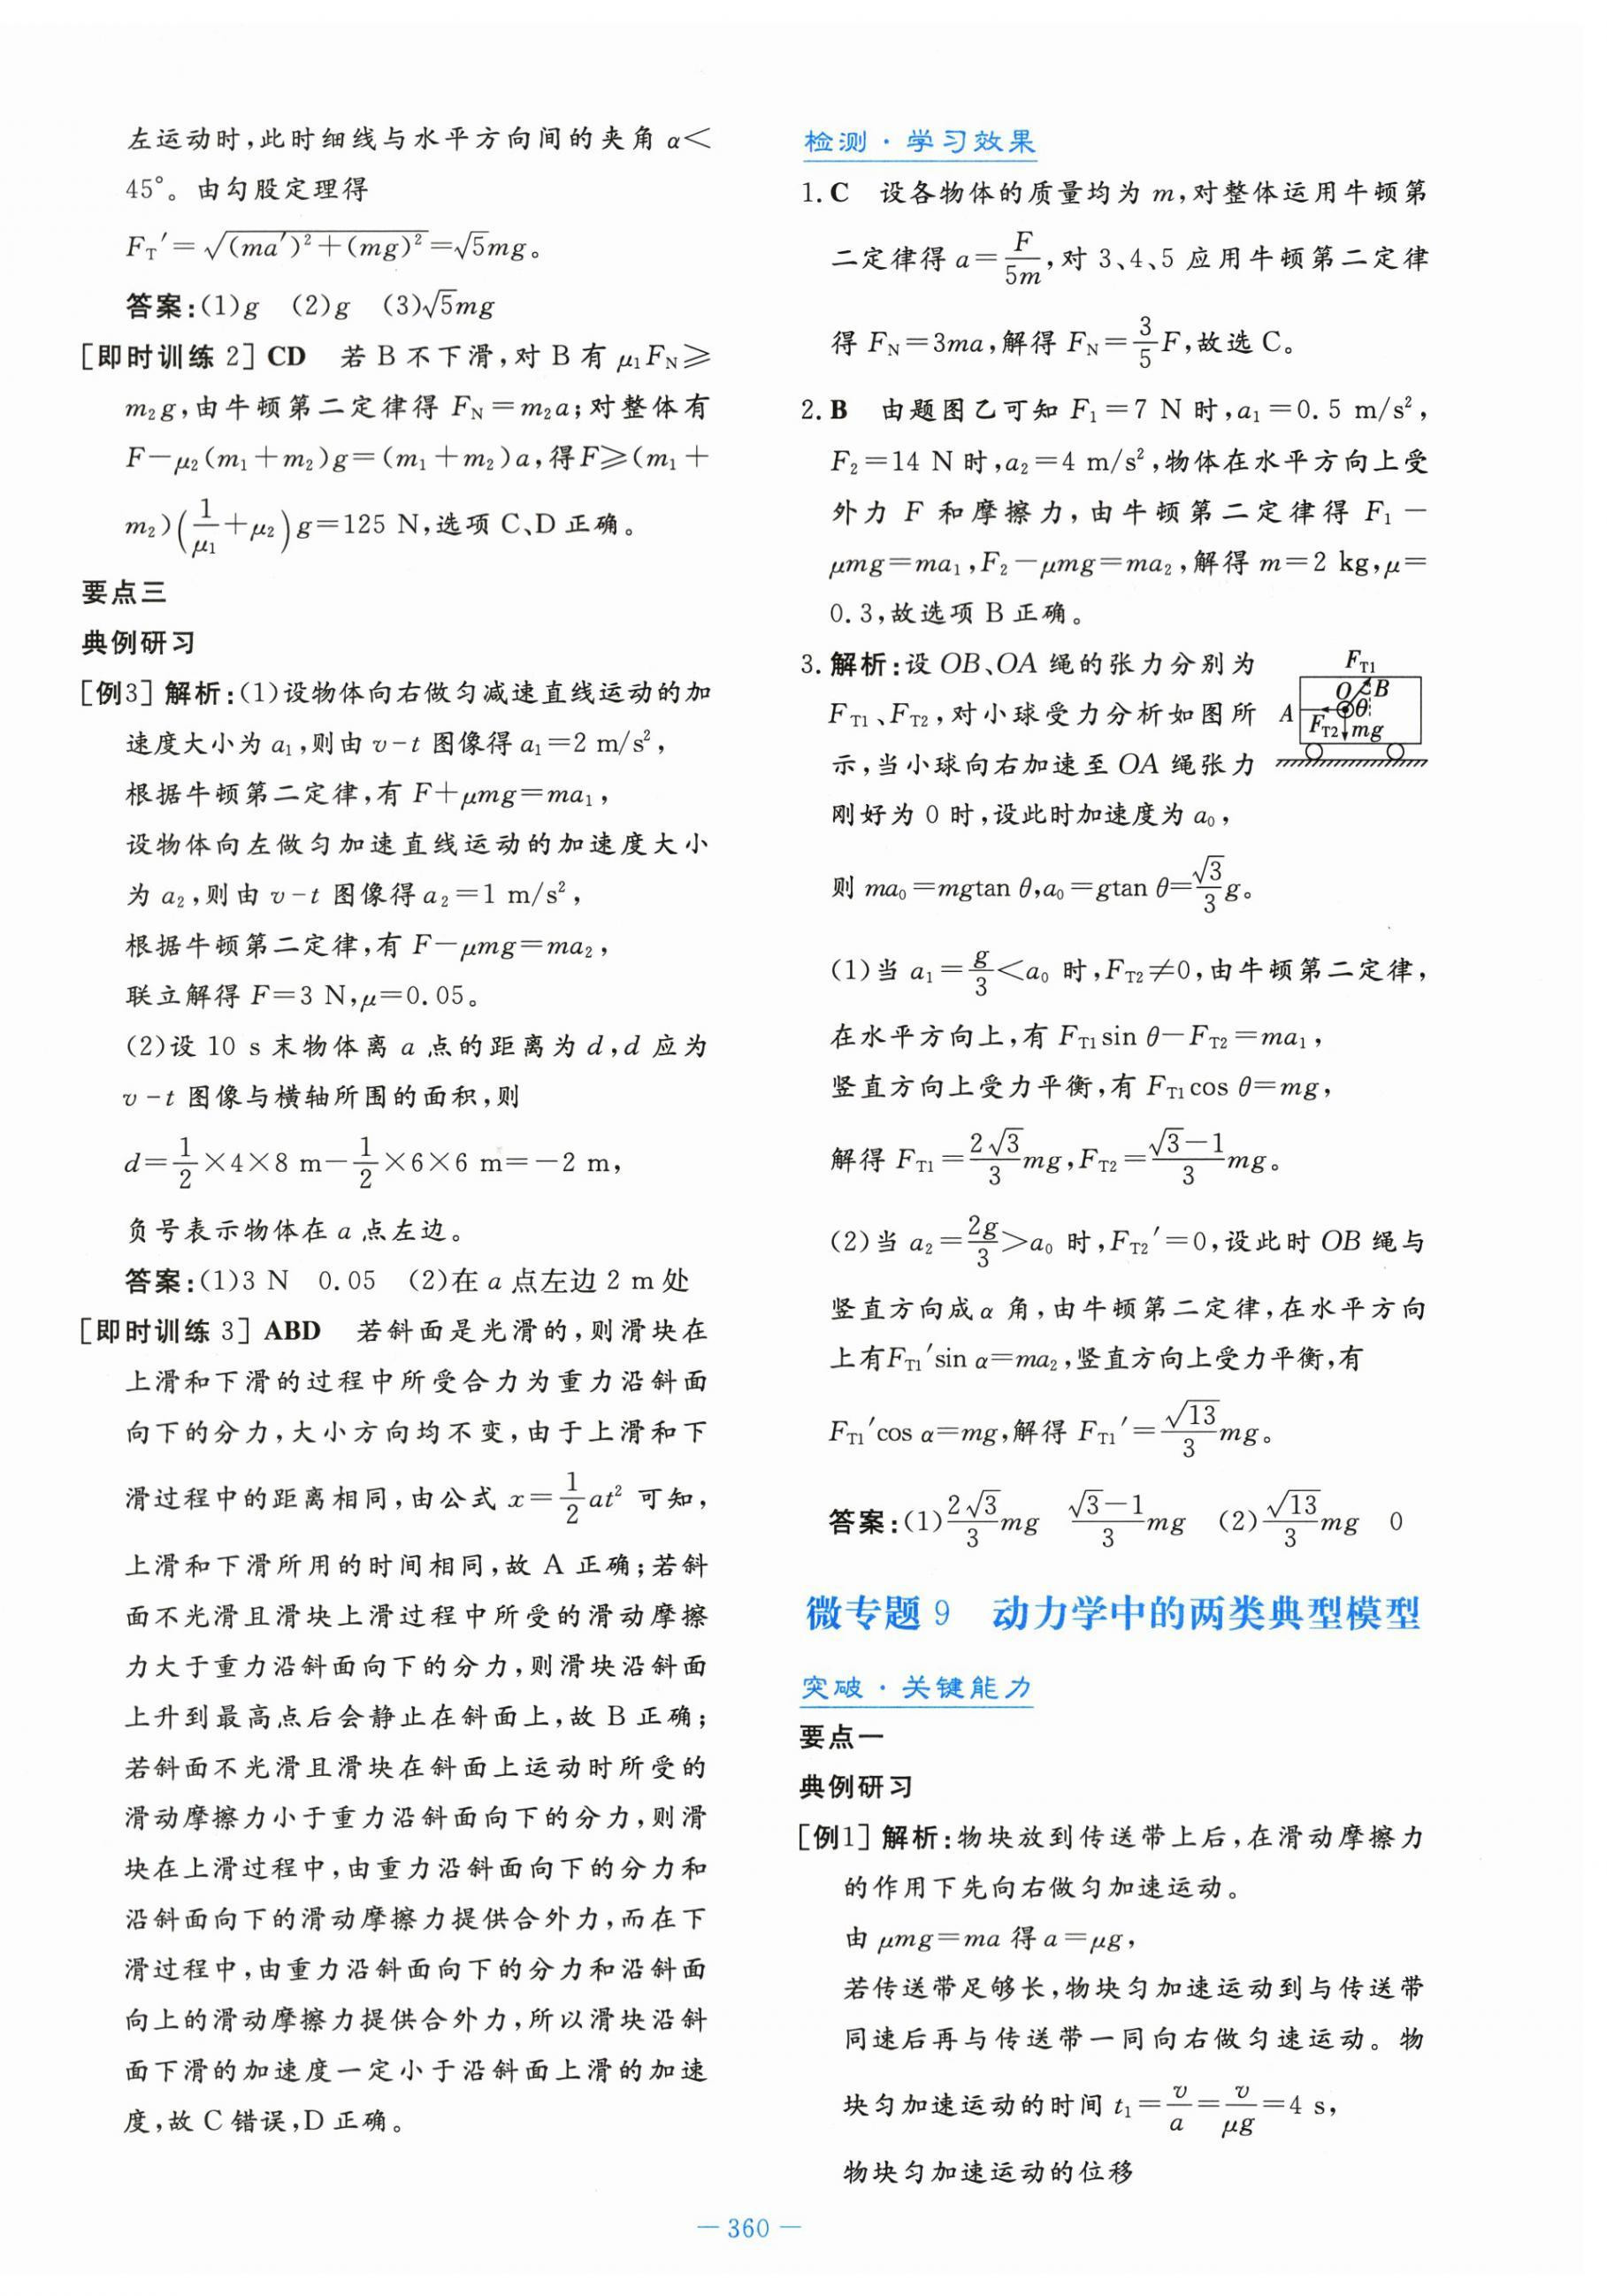 左运动时,此时细线与水平方向间的夹角 α<
45°。由勾股定理得
F_T′=√((ma′)²+(mg)²)=√5mg。
答案:(1)g (2)g (3)√5mg
[即时训练 2] CD 若 B 不下滑,对 B 有 μ₁F_N≥
m₂g,由牛顿第二定律得 F_N=m₂a;对整体有
F−μ₂(m₁+m₂)g=(m₁+m₂)a,得F≥(m₁+
m₂)(1/μ₁+μ₂)g=125 N,选项 C、D 正确。
要点三
典例研习
[例3] 解析:(1)设物体向右做匀减速直线运动的加
速度大小为 a₁,则由 v-t 图像得 a₁=2 m/s²,
根据牛顿第二定律,有 F+μmg=ma₁,
设物体向左做匀加速直线运动的加速度大小
为 a₂,则由 v-t 图像得 a₂=1 m/s²,
根据牛顿第二定律,有 F−μmg=ma₂,
联立解得 F=3 N,μ=0.05。
(2)设 10 s 末物体离 a 点的距离为 d,d 应为
v-t 图像与横轴所围的面积,则
d=1/2×4×8 m−1/2×6×6 m=−2 m,
负号表示物体在 a 点左边。
答案:(1)3 N 0.05 (2)在 a 点左边 2 m 处
[即时训练 3] ABD 若斜面是光滑的,则滑块在
上滑和下滑的过程中所受合力为重力沿斜面
向下的分力,大小方向均不变,由于上滑和下
滑过程中的距离相同,由公式 x=1/2at² 可知,
上滑和下滑所用的时间相同,故 A 正确;若斜
面不光滑且滑块上滑过程中所受的滑动摩擦
力大于重力沿斜面向下的分力,则滑块沿斜面
上升到最高点后会静止在斜面上,故 B 正确;
若斜面不光滑且滑块在斜面上运动时所受的
滑动摩擦力小于重力沿斜面向下的分力,则滑
块在上滑过程中,由重力沿斜面向下的分力和
沿斜面向下的滑动摩擦力提供合外力,而在下
滑过程中,由重力沿斜面向下的分力和沿斜面
向上的滑动摩擦力提供合外力,所以滑块沿斜
面下滑的加速度一定小于沿斜面上滑的加速
度,故 C 错误,D 正确。
检测·学习效果
1. C 设各物体的质量均为 m,对整体运用牛顿第
二定律得 a=F/5m,对 3、4、5 应用牛顿第二定律
得 F_N=3ma,解得 F_N=3/5F,故选 C。
2. B 由题图乙可知 F₁=7 N 时,a₁=0.5 m/s²,
F₂=14 N 时,a₂=4 m/s²,物体在水平方向上受
外力 F 和摩擦力,由牛顿第二定律得 F₁−
μmg=ma₁,F₂−μmg=ma₂,解得 m=2 kg,μ=
0.3,故选项 B 正确。
3. 解析:设 OB、OA 绳的张力分别为
F_T1、F_T2,对小球受力分析如图所
示,当小球向右加速至 OA 绳张力
刚好为 0 时,设此时加速度为 a₀,
F_T1
O B
A θ
F_T2 mg
则 ma₀=mgtan θ,a₀=gtan θ=√3/3g。
(1)当 a₁=g/3<a₀ 时,F_T2≠0,由牛顿第二定律,
在水平方向上,有 F_T1sin θ−F_T2=ma₁,
竖直方向上受力平衡,有 F_T1cos θ=mg,
解得 F_T1=2√3/3mg,F_T2=(√3−1)/3mg。
(2)当 a₂=2g/3>a₀ 时,F_T2′=0,设此时 OB 绳与
竖直方向成 α 角,由牛顿第二定律,在水平方向
上有F_T1′sin α=ma₂,竖直方向上受力平衡,有
F_T1′cos α=mg,解得 F_T1′=√13/3mg。
答案:(1)2√3/3mg (√3−1)/3mg (2)√13/3mg 0
微专题 9 动力学中的两类典型模型
突破·关键能力
要点一
典例研习
[例1] 解析:物块放到传送带上后,在滑动摩擦力
的作用下先向右做匀加速运动。
由 μmg=ma 得 a=μg,
若传送带足够长,物块匀加速运动到与传送带
同速后再与传送带一同向右做匀速运动。物
块匀加速运动的时间 t₁=v/a=v/μg=4 s,
物块匀加速运动的位移
— 360 —